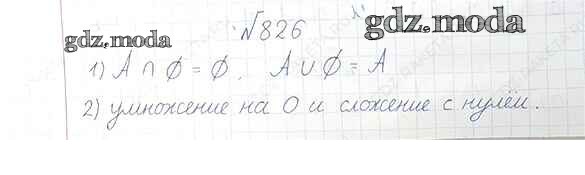 №826
gdz.moda
gdz.moda
1) A ∩ Ø = Ø. A ∪ Ø = A
2) умножение на 0 и сложение с нулём.